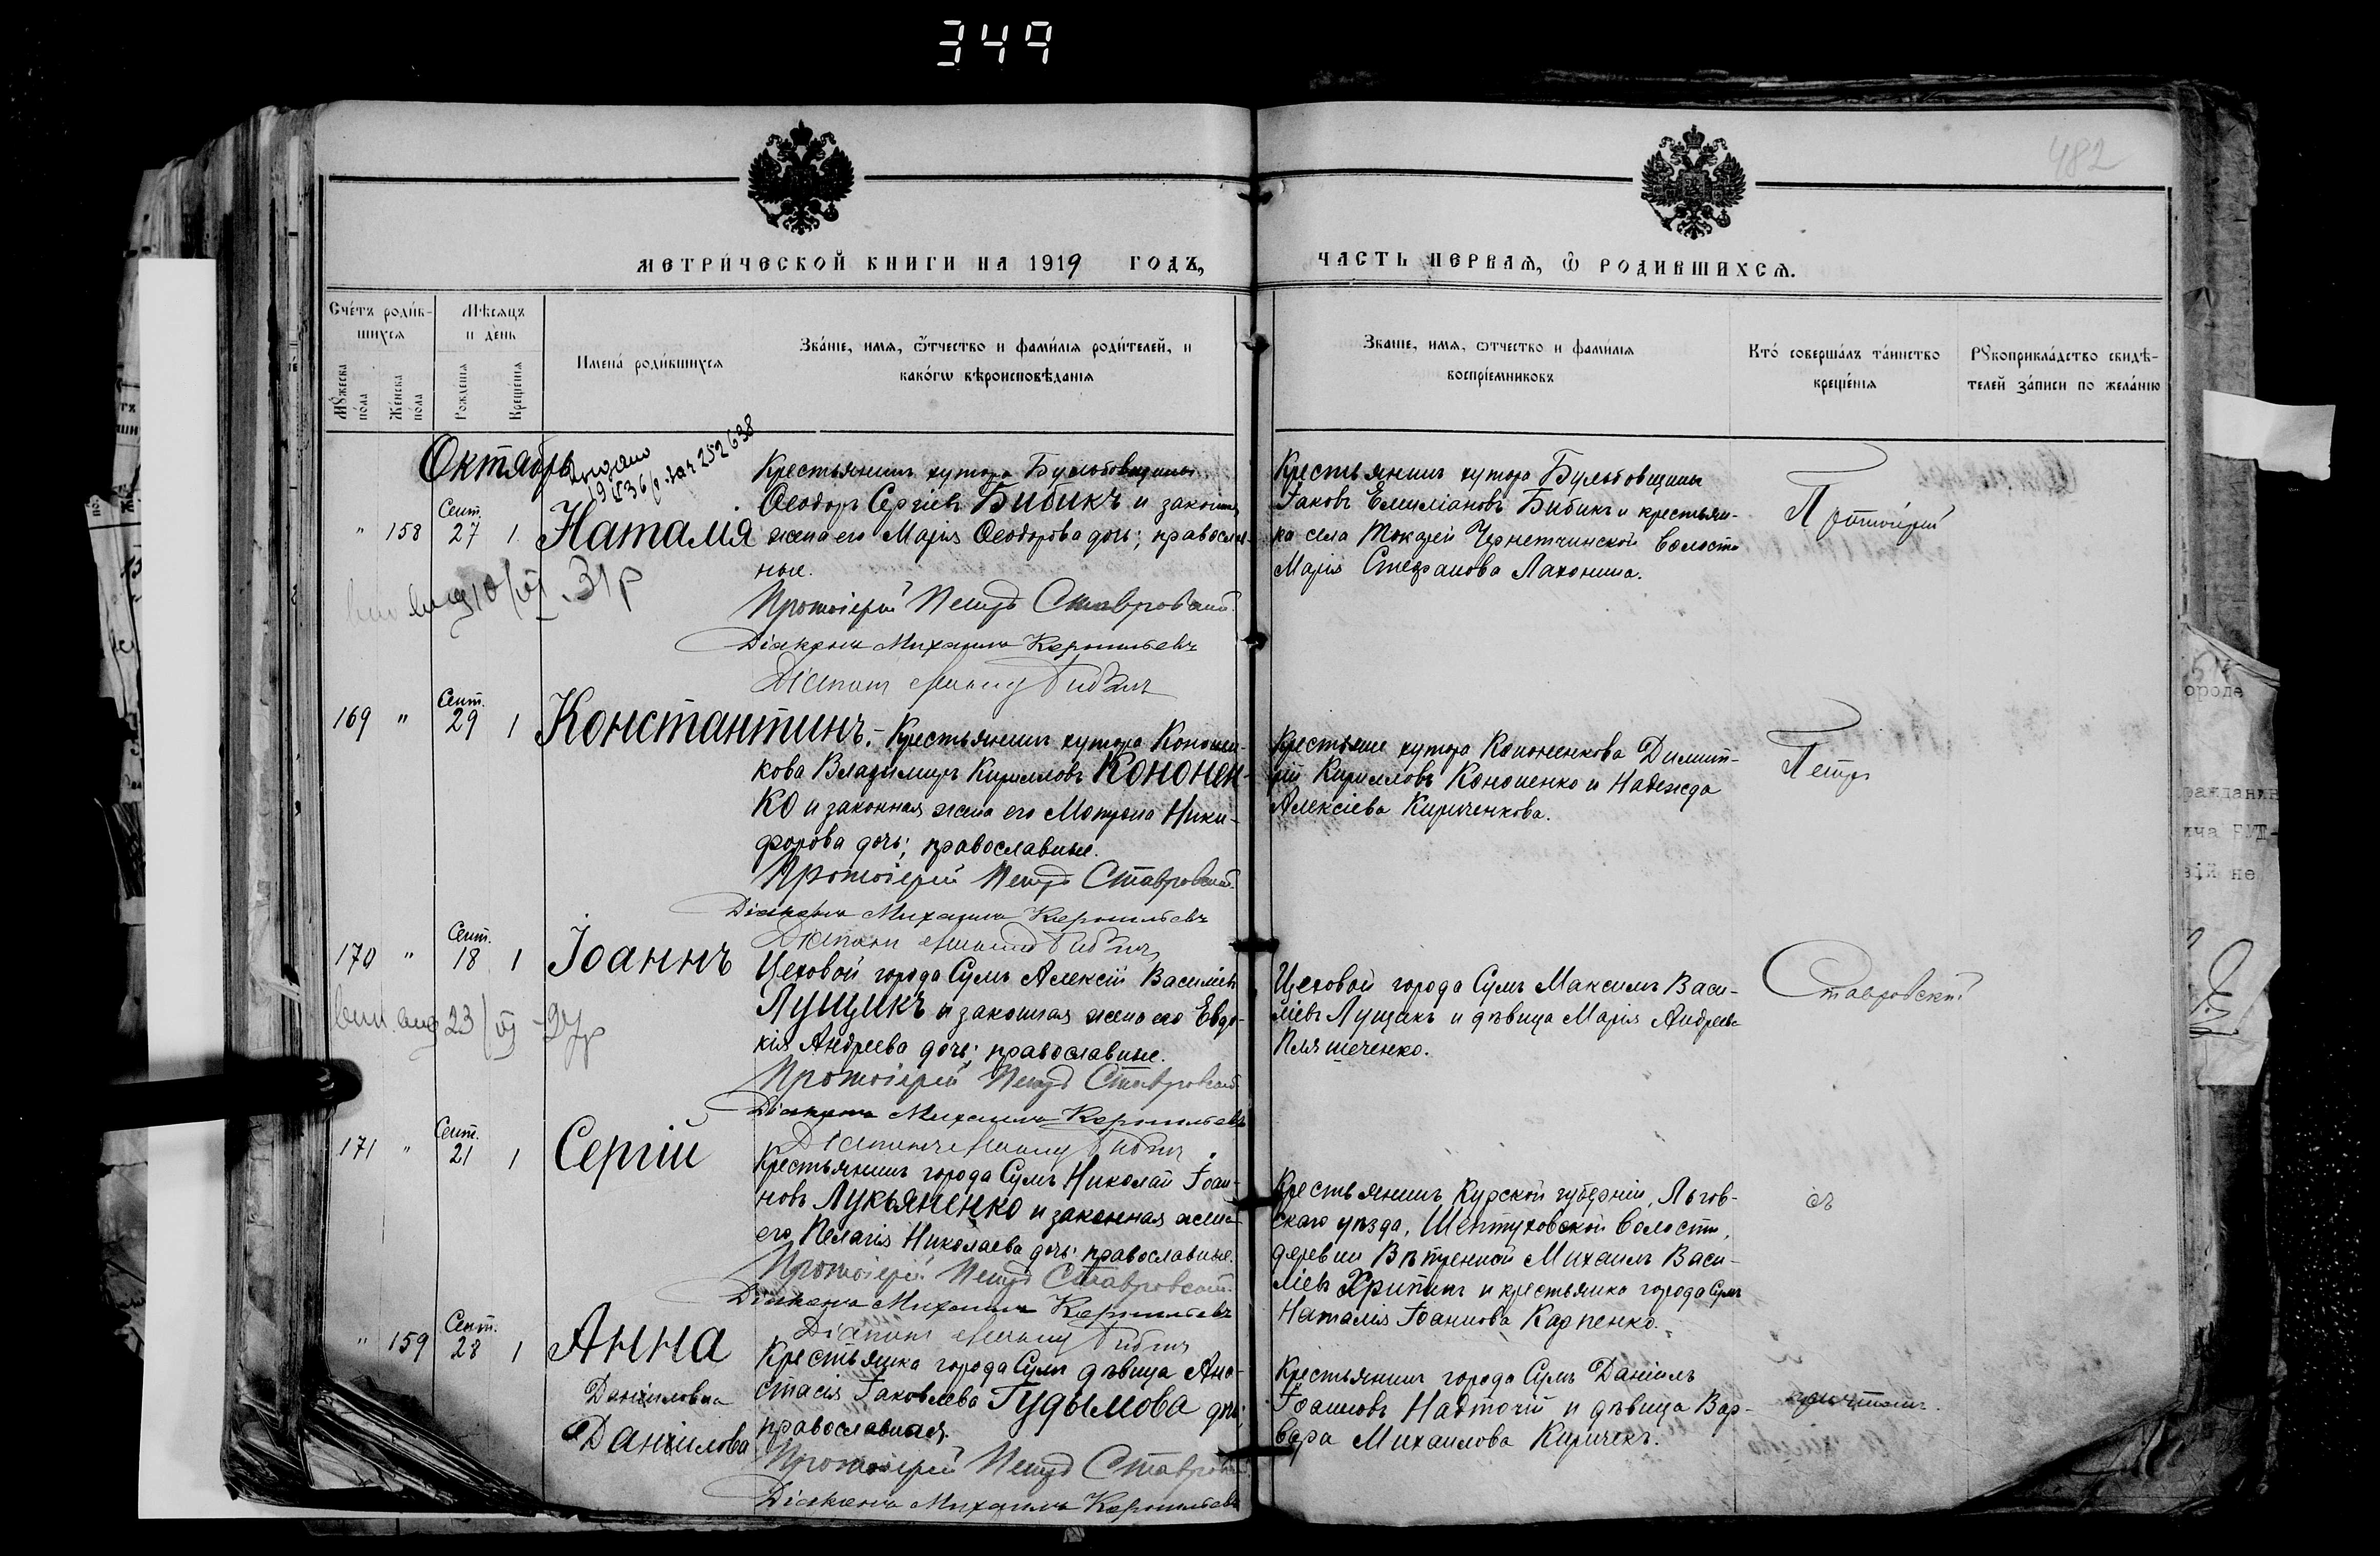 349
482
МЕТРИЧЕСКОЙ КНИГИ НА 1919 ГОДЪ,
ЧАСТЬ ПЕРВАЯ, Ѡ РОДИВШИХСЯ.
Счетъ родив-
шихся
Мужеска пола
Женска пола
Мѣсяцъ
и день
Рожденія
Крещенія
Имена родившихся
Званіе, имя, ѿчество и фамилія родителей, и
какогѡ вѣроисповѣданія
Званіе, имя, ѡтчество и фамилія
воспріемниковъ
Кто совершалъ таинство
крещенія
Рꙋкоприкладство свидѣ-
телей записи по желанію
Октябрь
252638
" 158 Сент. 27 1. Наталія
Крестьянинъ хутора Бульбовщины
Ѳеодоръ Сергіевъ Бибикъ и законная
жена его Марія Ѳеодорова дочь; православ-
ные.
Протоіерей Петръ Ставровскій
Діаконъ Михаилъ
Діаконъ
Крестьянинъ хутора Бульбовщины
Іаковъ Емиліановъ Бибикъ и крестьян-
ка села Токарей Чернетчинской волости
Марія Стефанова Лахонина.
Протоіерей
10/VI 31 р
169 " Сент. 29 1 Константинъ.-
Крестьянинъ хутора Кононен-
кова Владимиръ Кирилловъ Кононен-
ко и законная жена его Матрона Ники-
форова дочь; православные.
Протоіерей Петръ Ставровскій
Діаконъ Михаилъ
Діаконъ
Крестьяне хутора Кононенкова Димит-
рій Кирилловъ Кононенко и Надежда
Алексіева Кириченкова.
Петръ
170 " Сент. 18 1 Іоаннъ
Цеховой города Сумъ Алексій Василіевъ
Лущикъ и законная жена его Евдо-
кія Андреева дочь; православные.
Протоіерей Петръ Ставровскій
Діаконъ Михаилъ
Діаконъ
Цеховой города Сумъ Максимъ Васи-
ліевъ Лущикъ и дѣвица Марія Андреева
Пляшеченко.
Ставровскій
23/VI
171 " Сент. 21 1 Сергій
Крестьянинъ города Сумъ Николай Іоан-
новъ Лукьяненко и законная жена
его Пелагія Николаева дочь; православные.
Протоіерей Петръ Ставровскій
Діаконъ Михаилъ
Діаконъ
Крестьянинъ Курской губерніи, Льгов-
скаго уѣзда, Шептуховской волости,
деревни Вѣтренной Михаилъ Васи-
ліевъ Хрипинъ и крестьянка города Сумъ
Наталія Іоаннова Карпенко.
съ
" 159 Сент. 28 1 Анна
Даніиловна
Даніилова
Крестьянка города Сумъ дѣвица Ана-
стасія Іаковлева Гудымова дчь;
православная.
Протоіерей Петръ Ставровскій
Діаконъ Михаилъ
Крестьянинъ города Сумъ Даніилъ
Іоанновъ Надточій и дѣвица Вар-
вара Михаилова Киричекъ.
причтомъ.
ороде
ражданин
ича
ій не